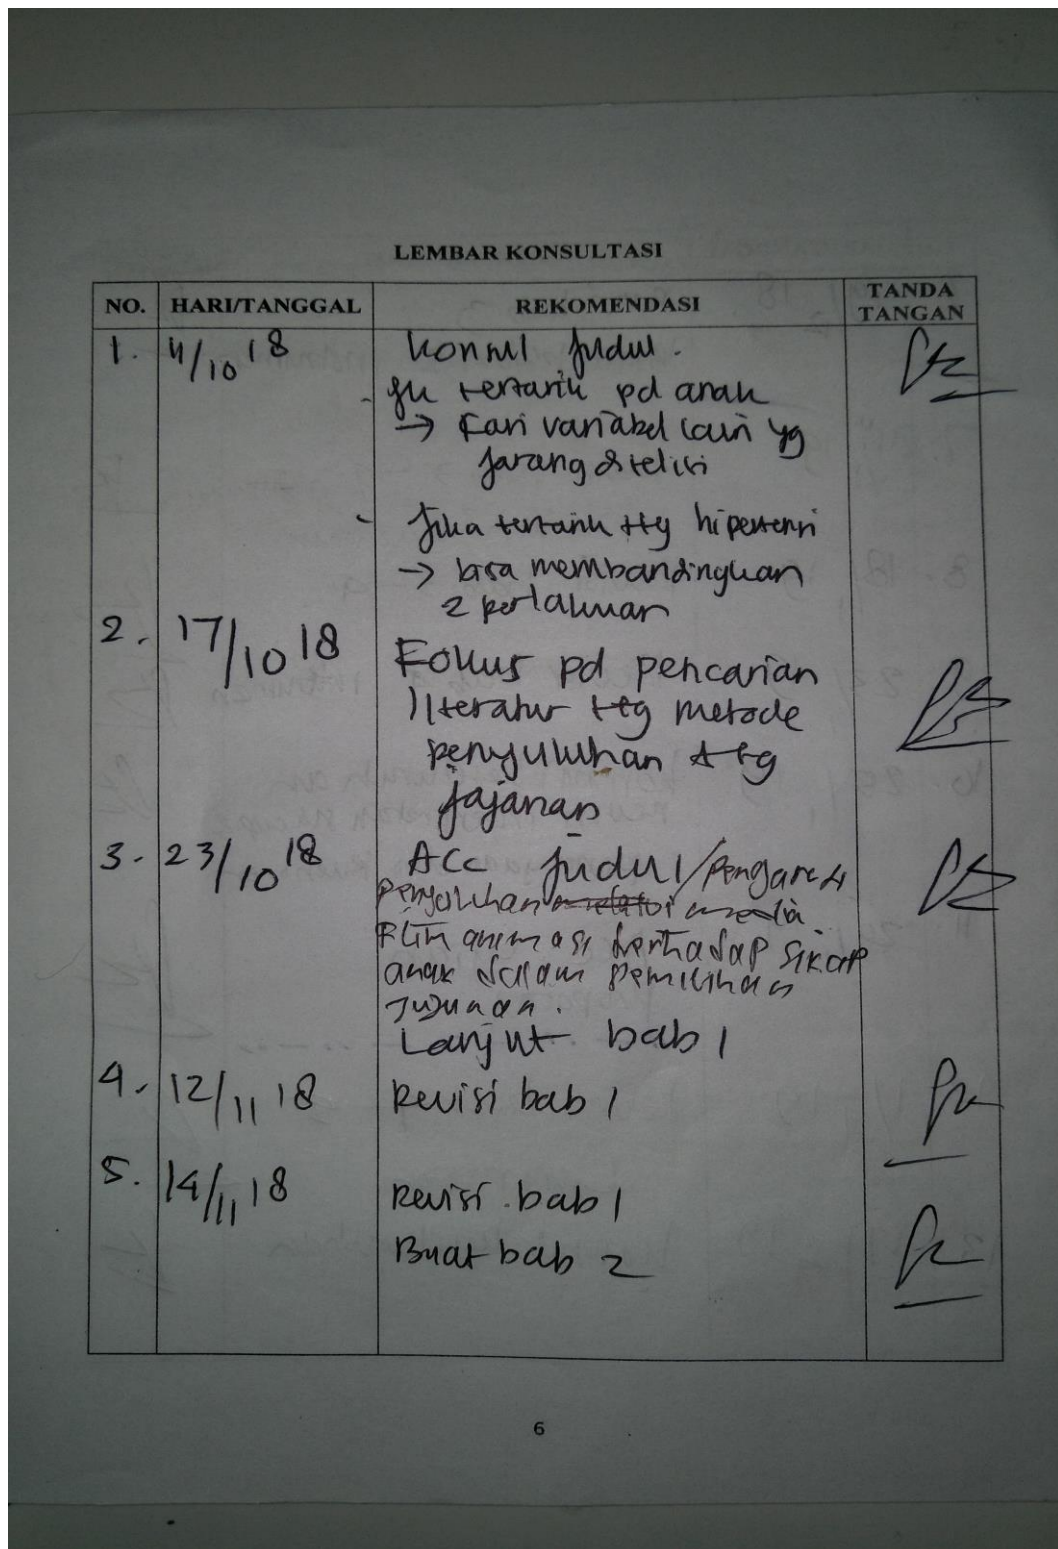 LEMBAR KONSULTASI
NO. HARI/TANGGAL REKOMENDASI TANDA TANGAN
1. 4/10 18 Konsul judul.
- jk tertarik pd anak
→ Cari variabel lain yg
jarang diteliti
- Jika tertarik ttg hipertensi
→ bisa membandingkan
2 perlakuan
2. 17/10 18 Fokus pd pencarian
literatur ttg metode
penyuluhan ttg
jajanan
3. 23/10 18 ACC judul / pengaruh
penyuluhan melalui media
film animasi terhadap sikap
anak dalam pemilihan
jajanan.
Lanjut bab 1
4. 12/11 18 Revisi bab 1
5. 14/11 18 Revisi bab 1
Buat bab 2
6